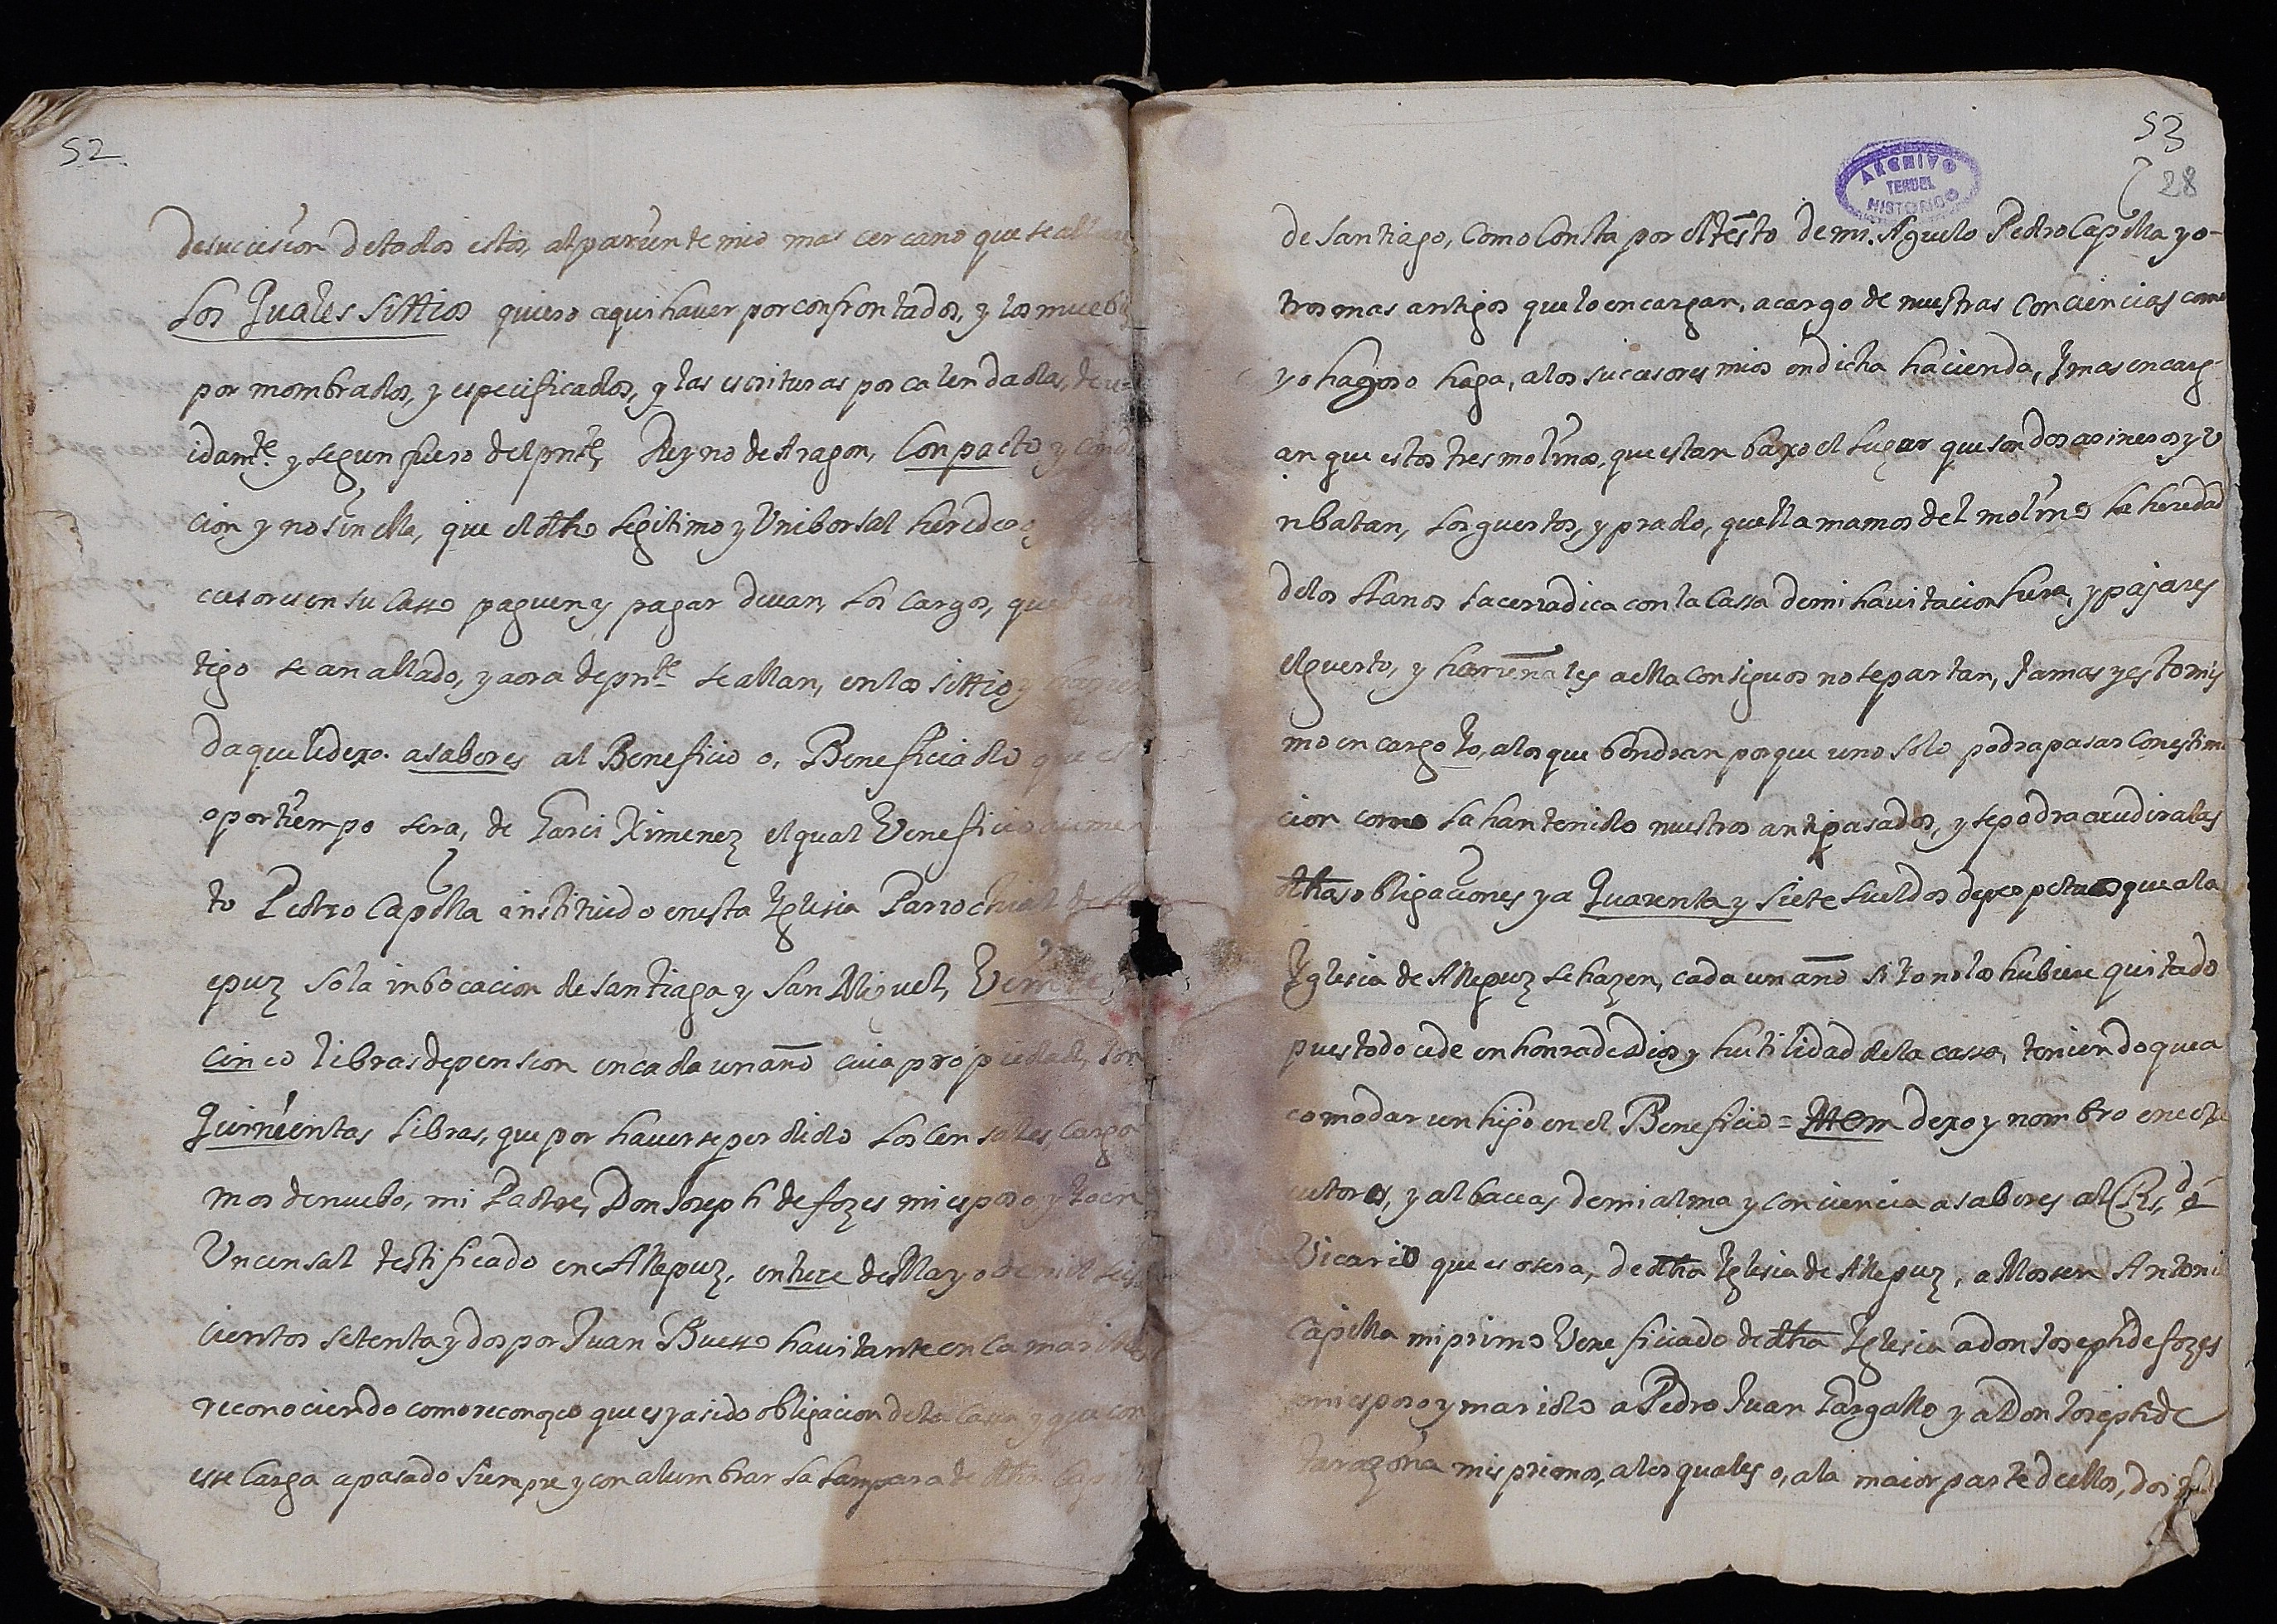 52
de sucision de todos estos, al pariente mio mas cercano que se allara
Los Quales Sittios quiero aqui haver por confrontados, y los muebles
por mombrados, y especificados, y las escrituras por calendadas, deu=
idamte. y segun fuero del pnte. Reyno de Aragon, Con pacto y condi
cion y no sin ella, que el dho legitimo y Unibersal heredero y
ccesores en su Casso paguen y pagar devan, Los Cargos, que de an
tigo se an allado, y aora de pnte. se allan, en los sittios y hacien
da que le dexo. a saber es al Beneficio o, Beneficiado que es
o por tiempo sera, de Garci Ximenez el qual Veneficio aumen
to Pedro Capilla instituido en esta Yglesia Parrochial de All
epuz so la inbocacion de santiago y San Miguel, Veinte y
cinco libras de pension en cada un año cuia propiedad, son
Quinientas Libras, que por haverse perdido Los Censales, Cargo
mos de nuebo, mi Padre, Don Joseph de fozes mi esposo, y Yo en
Un censal testificado en Allepuz, en trece de Mayo de mil seis
cientos setenta y dos por Juan Buesso havitante en Camarillas
reconociendo como reconozco que es y a sido obligacion de la Cassa y que con
esse Carga a pasado siempre y con alumbrar La Lampara de dha Cap
53
ARCHIVO
TERUEL
HISTORICO
28
de Santiago, Como Consta por el testo de mi Aguelo Pedro Capilla y o-
tros mas antigos que lo encargan, a cargo de nuestras Conciencias como
yo hagoso haga, a los sucesores mios en dicha hacienda, Y mas encarg-
an que estos tres molinos, que estan baxo el Lugar que son dos arineros y u
n batan, Los guertos, y prado, que llamamos del molino La heredad
de los Llanos La cerradica con la Cassa de mi havitacion hera, y pajares
el guerto, y harreñales a ella Contiguos no se partan, Jamas y esto mis
mo encargo Yo, a los que bendran porque uno solo podra pasar Con estima
cion como La han tenido nuestros antipasados, y se podra acudir a las
dhas obligaciones y a Quarenta y Siete Sueldos de perpetuos que a la
Yglesia de Allepuz se hazen, cada un año si Yo no los hubiere quitado
pues todo cede en honra de Dios y hutilidad de la cassa, teniendo que a
comodar un hijo en el Beneficio = Ittem dexo y nombro en exe
cutores, y albaceas de mi alma y conciencia a saber es al Rdo.
Vicario que es o sera, de dha Yglesia de Allepuz, a Mossen Antonio
Capilla mi primo Veneficiado de dha Yglesia a don Joseph de fozes
mi esposo y marido a Pedro Juan Gargallo y a Don Joseph de
Tarazona mis primos, a los quales o, a la maior parte de ellos, dos